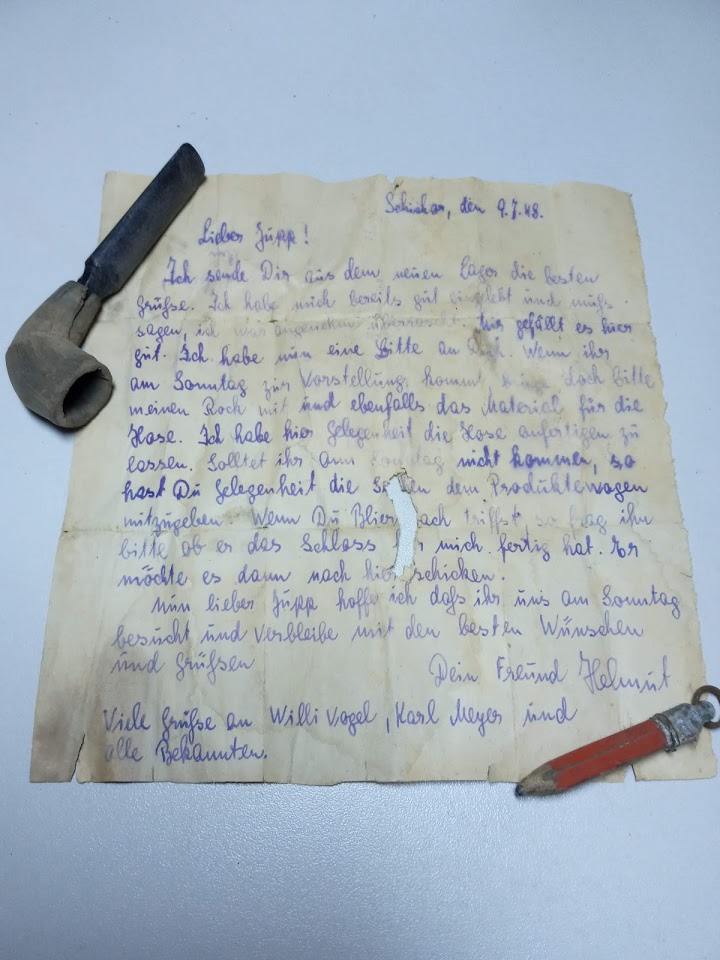 Schichow, den 9.7.48.
Lieber Jupp!
Ich sende Dir aus dem neuen Lager die besten
Grüße. Ich habe mich bereits gut eingelebt und muß
sagen, ich war angenehm überrascht. Mir gefällt es hier
gut. Ich habe nun eine Bitte an Dich. Wenn ihr
am Sonntag zur Vorstellung kommt doch bitte
meinen Rock mit und ebenfalls das Material für die
Hose. Ich habe hier Gelegenheit die Hose anfertigen zu
lassen. Solltet ihr am Sonntag nicht kommen, so
hast Du Gelegenheit die dem Produktewagen
mitzugeben. Wenn Du triffst, so frag ihn
bitte ob er das Schloss mich fertig hat. Er
möchte es dann nach hier schicken.
Nun lieber Jupp hoffe ich daß ihr uns am Sonntag
besucht und verbleibe mit den besten Wünschen
und Grüßen
Dein Freund Helmut
Viele Grüße an Willi Vogel, Karl Meyer und
alle Bekannten.